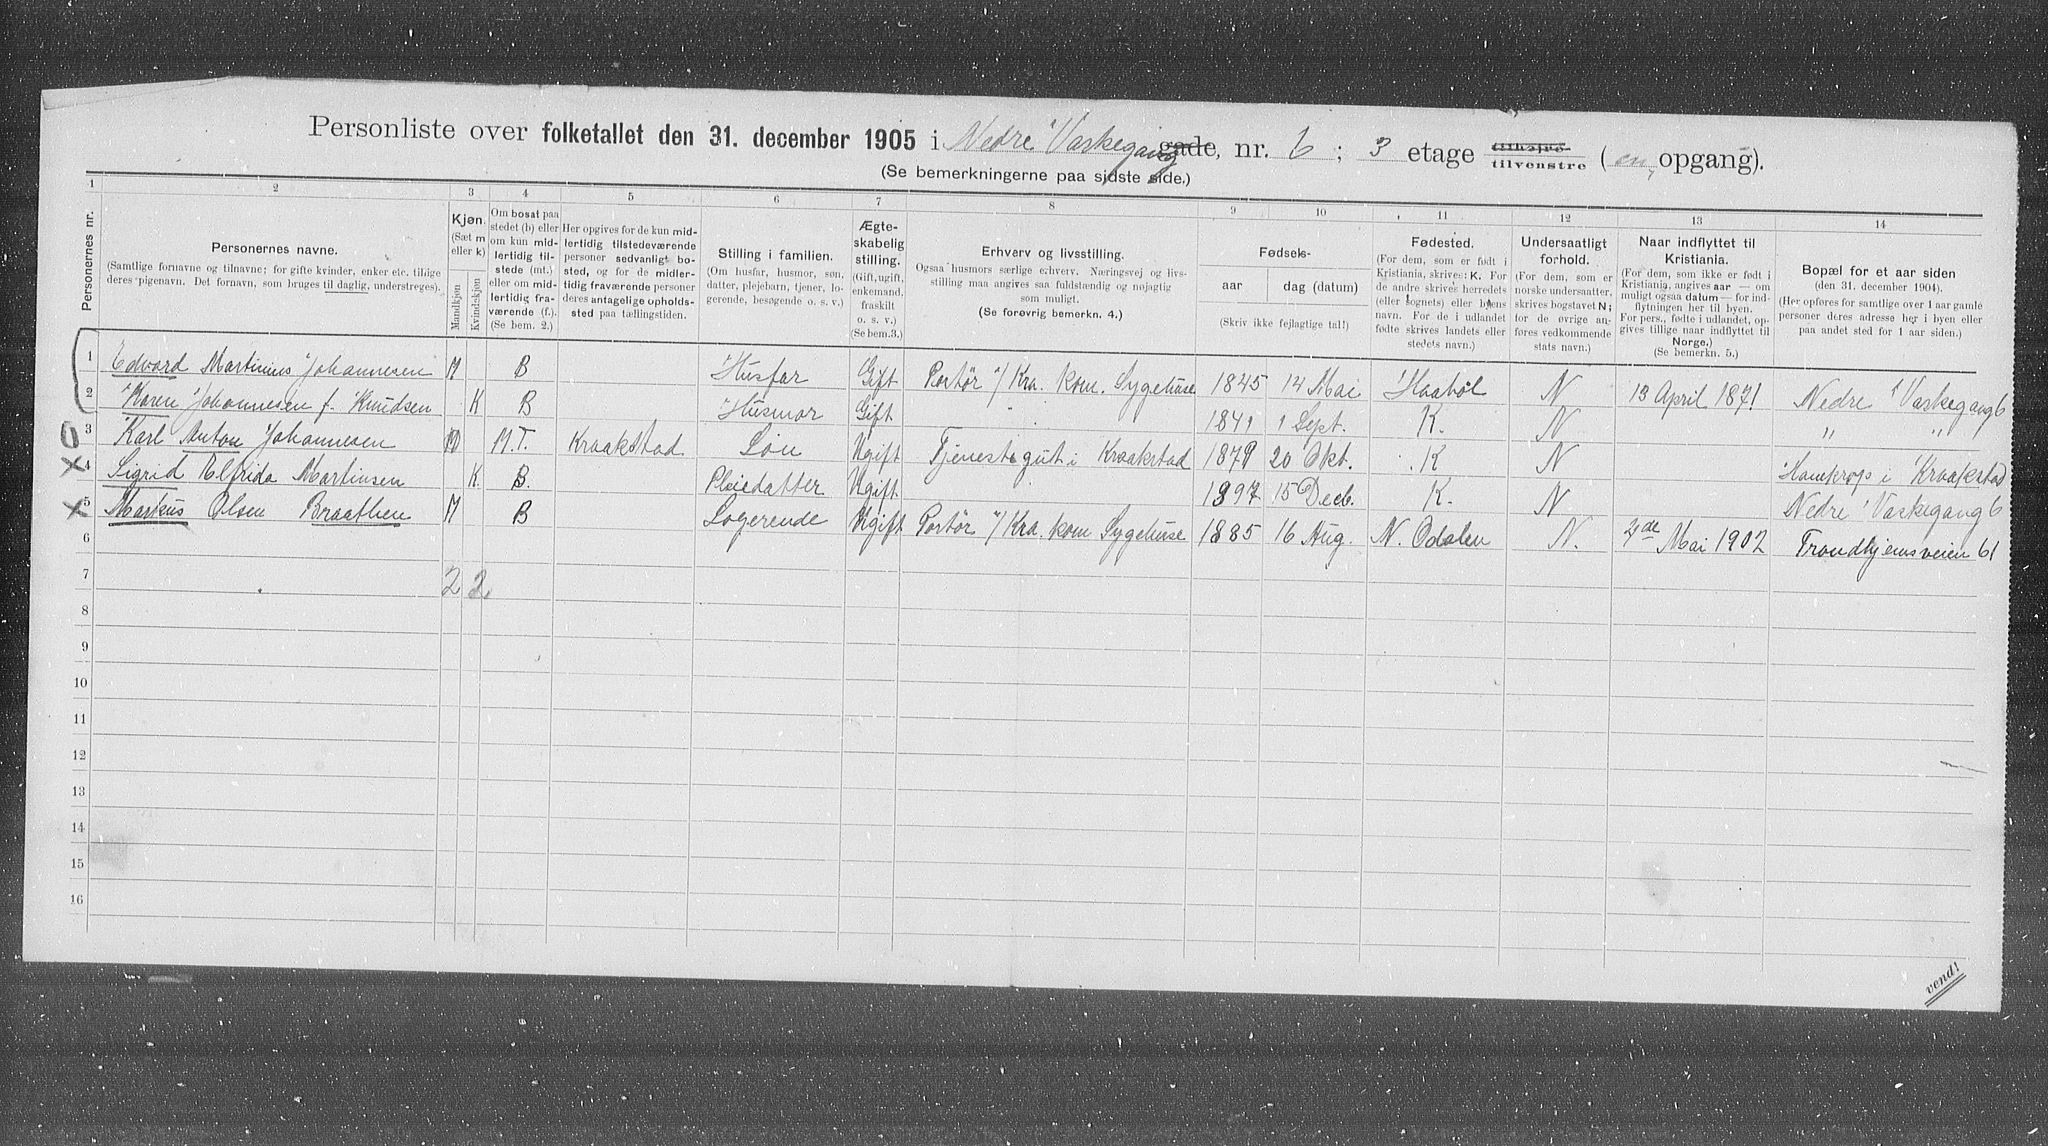 Personliste over folketallet den 31. december 1905 i Nedre Vaskegang gade, nr. 6 ; 3 etage tilhøire tilvenstre (en opgang).
(Se bemerkningerne paa sidste side.)
1 2 3 4 5 6 7 8 9 10 11 12 13 14
Personernes nr.
Personernes navne.
(Samtlige fornavne og tilnavne; for gifte kvinder, enker etc. tillige
deres pigenavn. Det fornavn, som bruges til daglig, understreges).
Kjøn.
(Sæt m
eller k)
Mandkjøn
Kvindekjøn
Om bosat paa
stedet (b) eller
om kun mid-
lertidig til-
stede (mt.)
eller om mid-
lertidig fra-
værende (f.).
(Se bem. 2.)
Her opgives for de kun mid-
lertidig tilstedeværende
personer sedvanlig bo-
sted, og for de midler-
tidig fraværende personer
deres antagelige opholds-
sted paa tællingstiden.
Stilling i familien.
(Om husfar, husmor, søn,
datter, plejebarn, tjener, lo-
gerende, besøgende o. s. v.)
Ægte-
skabelig
stilling.
(Gift, ugift,
enkemand,
fraskilt
o. s. v.)
(Se bem.3.)
Erhverv og livsstilling.
Ogsaa husmors særlige erhverv. Næringsvej og livs-
stilling maa angives saa fuldstændig og nøjagtig
som muligt.
(Se forøvrig bemerkn. 4.)
Fødsels-
aar dag (datum)
(Skriv ikke fejlagtige tal!)
Fødested.
(For dem, som er født i
Kristiania, skrives: K. For
de andre skrives herredets
(eller sognets) eller byens
navn. For de i udlandet
fødte skrives landets eller
stedets navn.)
Undersaatligt
forhold.
(For dem, som er
norske undersaatter,
skrives bogstavet N;
for de øvrige an-
føres vedkommende
stats navn.)
Naar indflyttet til
Kristiania.
(For dem, som ikke er født i
Kristiania, angives aar — om
muligt ogsaa datum — for ind-
flytningen her til byen.
For pers., født i udlandet, op-
gives tillige naar indflyttet til
Norge.)
(Se bemerkn. 5.)
Bopæl for et aar siden
(den 31. december 1904).
(Her opføres for samtlige over 1 aar gamle
personer deres adresse her i byen eller
paa andet sted for 1 aar siden.)
1 Edvard Martinius Johannesen M B Husfar Gift Portør v/ Kra. kom. Sygehuse 1845 14 Mai Haabøl N 13 April 1871 Nedre Vaskegang 6
2 Karen Johannesen f. Knudsen K B Husmor Gift " 1841 1 Sept. K. N " "
3 Karl Anton Johannesen M M.T. Kraakstad Søn Ugift Tjenestegut i Kraakstad 1879 20 Okt. K N Haukrop i Kraakstad
4 Sigrid Elfrida Martinsen K B. Pleiedatter Ugift 1897 15 Decb. K. N Nedre Vaskegang 6
5 Markus Olsen Braathen M B Logerende Ugift Portør v/ Kra. kom. Sygehuse 1885 16 Aug. N. Odalen N. Mai 1902 Trondhjemsveien 61
6
7 2 2
8
9
10
11
12
13
14
15
16
vend!